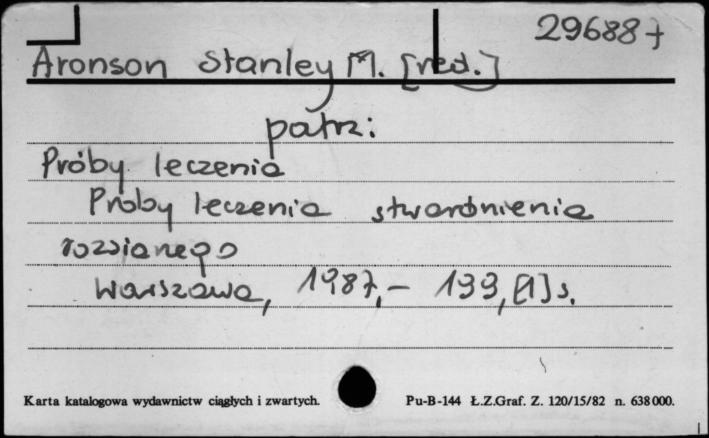 296887
Aronson Stanley M. [red.]
patrz:
Próby leczenia
Próby leczenia stwardnienia
rozsianego
Warszawa, 1987,- 199, [1] s.
Karta katalogowa wydawnictw ciągłych i zwartych. Pu-B-144 Ł.Z.Graf. Z. 120/15/82 n. 638 000.